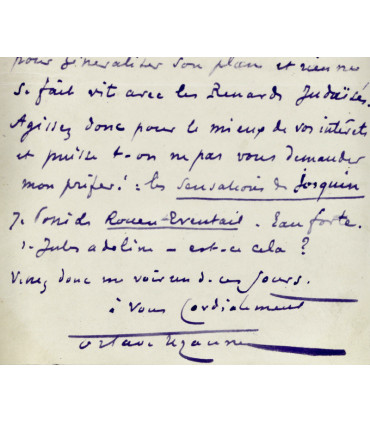 pour généraliser son plan et rien ne
se fait vit avec les Renards Judaïsés.
Agissez donc pour le mieux de vos intérêts
et puisse t-on ne pas vous demander
mon préféré : les sensations de Josquin
Je Rouen-Eventail. Eau forte.
Jules adeline - est-ce cela ?
Venez donc me voir un de ces jours.
à vous Cordialement
Octave Uzanne